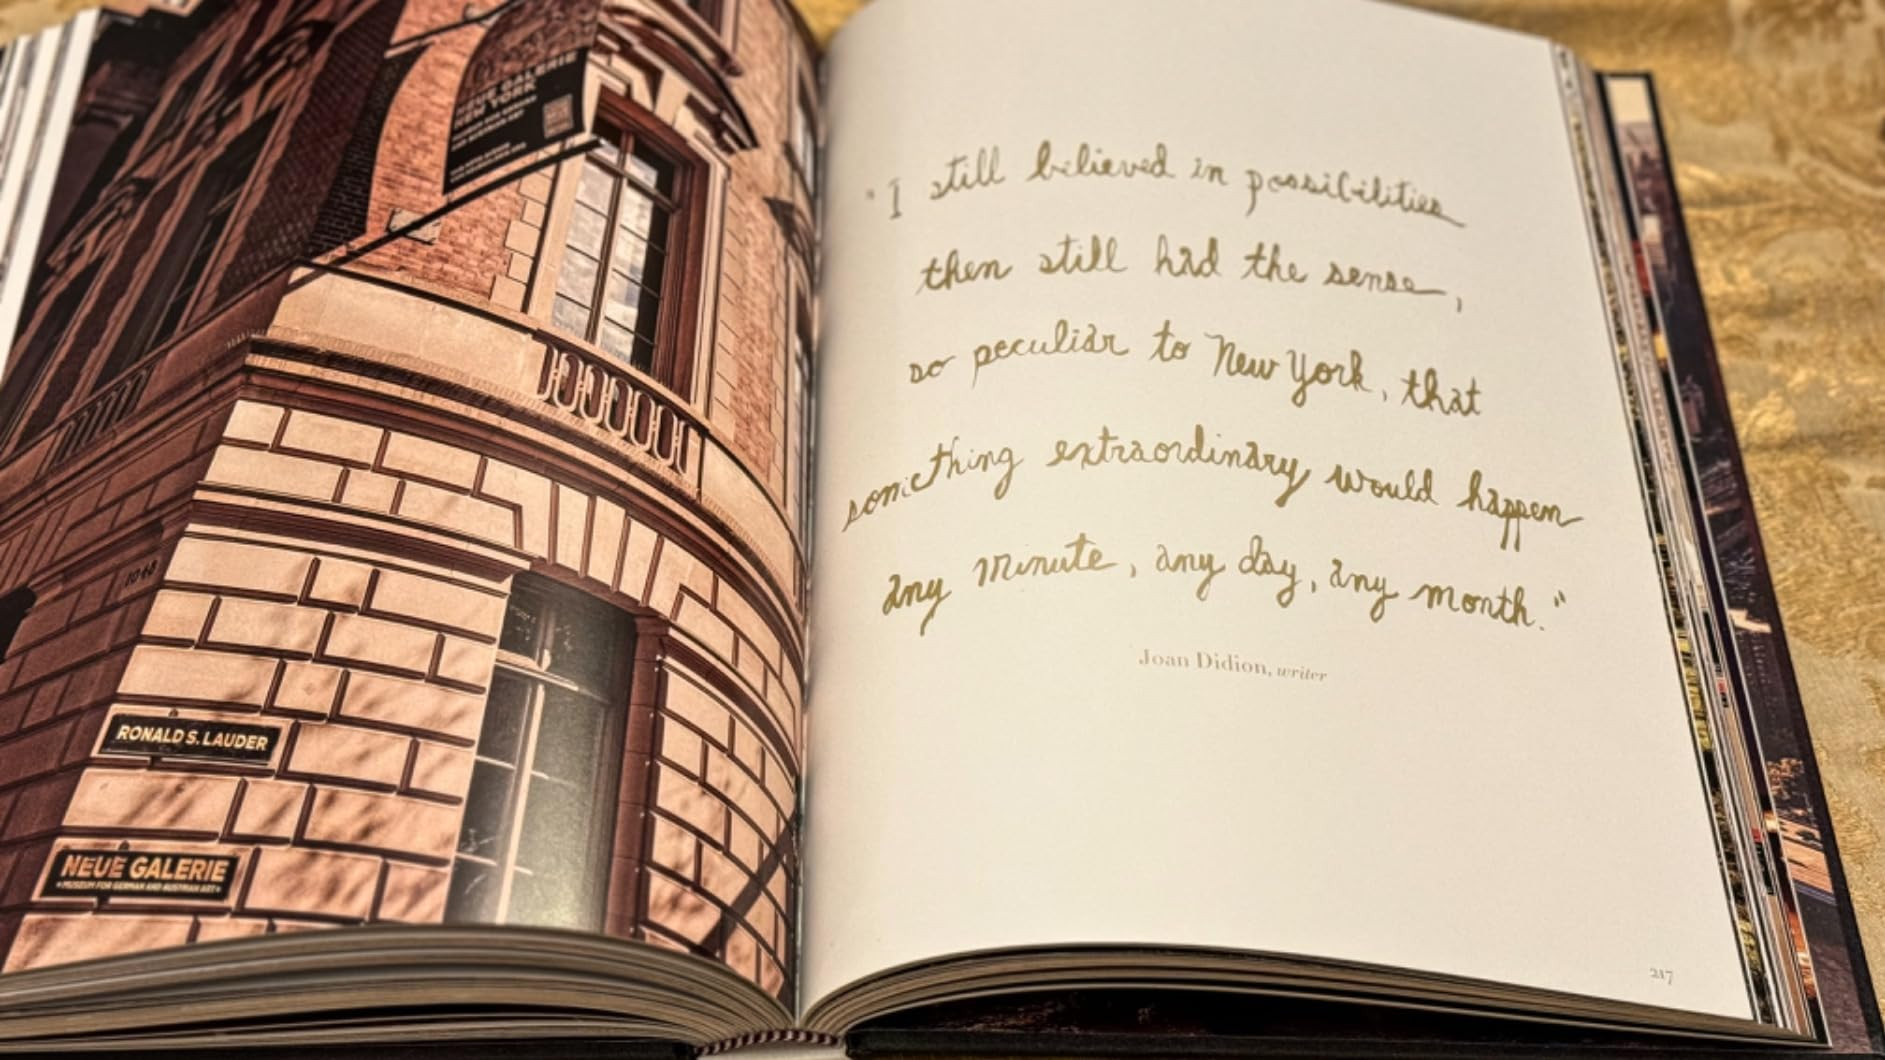 NEUE GALERIE
NEW YORK
1048
RONALD S. LAUDER
NEUE GALERIE
MUSEUM FOR GERMAN AND AUSTRIAN ART
"I still believed in possibilities
then still had the sense,
so peculiar to New York, that
something extraordinary would happen
any minute, any day, any month."
Joan Didion, writer
217